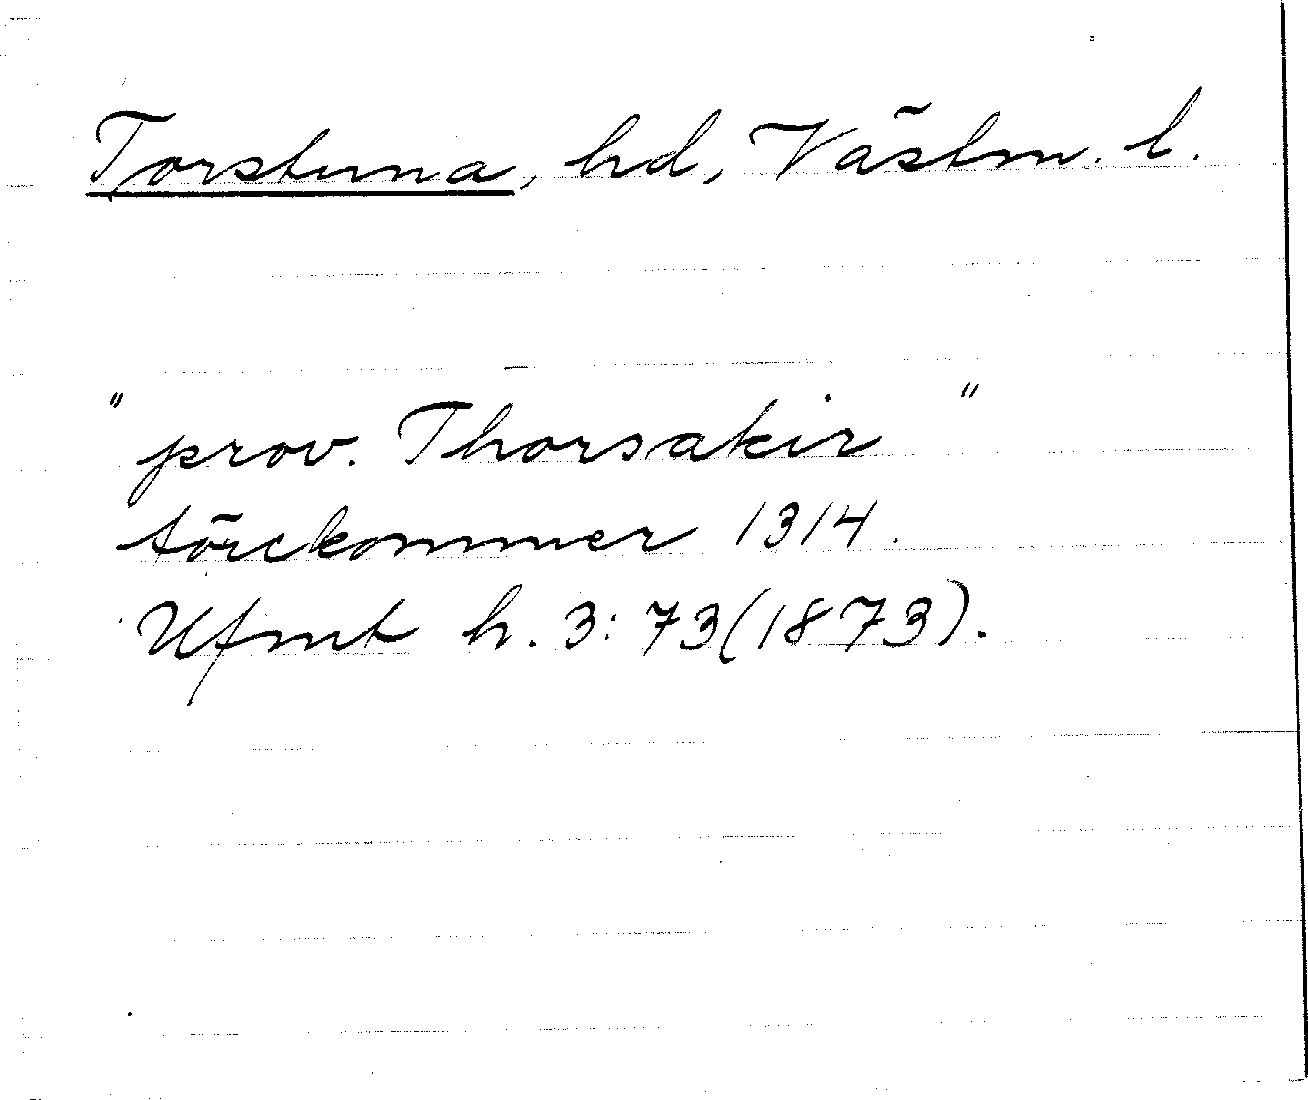 Torstuna, hd, Västm. l.
"prov. Thorsakir"
förekommer 1314.
Ufmt h. 3:73(1873).